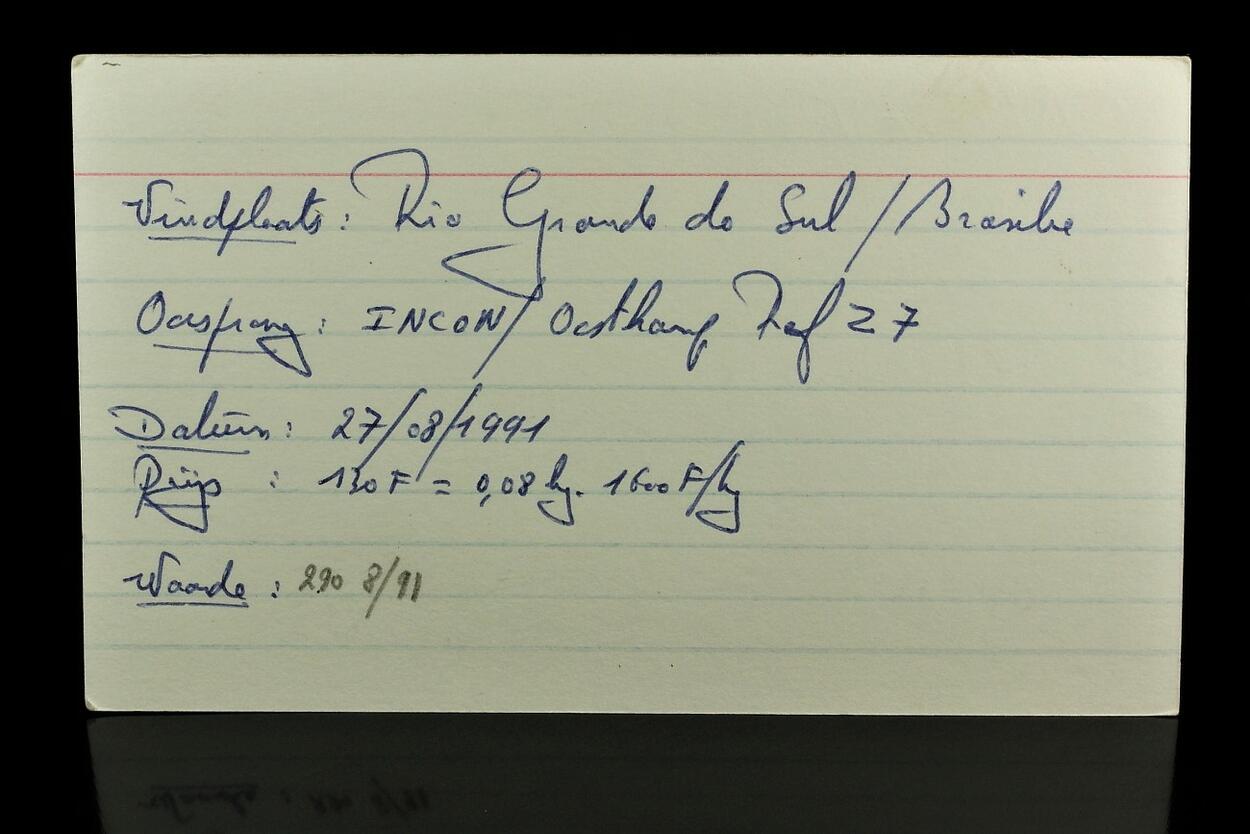 Vindplaats: Rio Grande do Sul / Brasilie
Oorsprong: INCON / Oostkamp Ref Z 7
Datum: 27/08/1991
Prijs : 130 F = 0,08 kg. 1600 F/kg
Waarde : 290 8/91